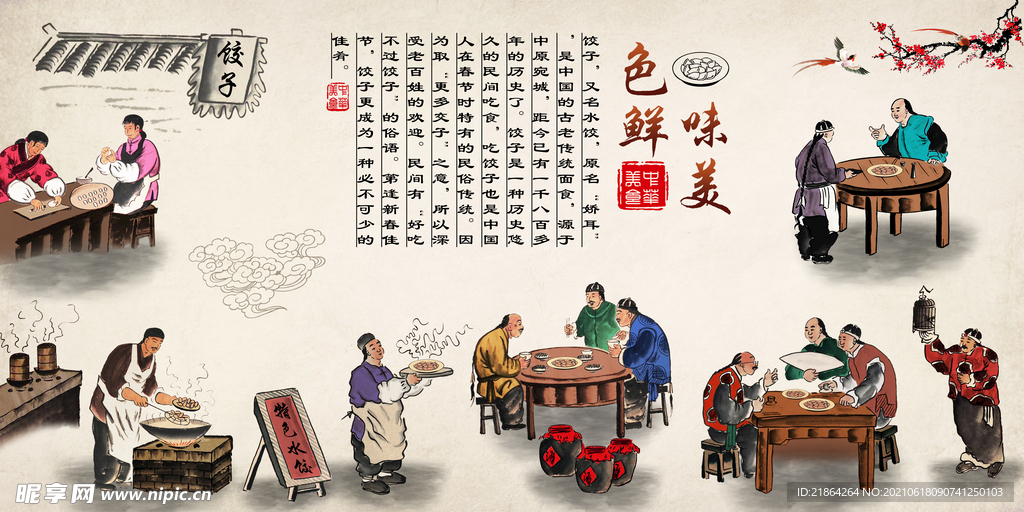 饺子
味美
色鲜
中华
美食
饺子，又名水饺，原名“娇耳”
，是中国的古老传统面食，源于
中原宛城，距今已有一千八百多
年的历史了。饺子是一种历史悠
久的民间吃食，吃饺子也是中国
人在春节时特有的民俗传统。因
为取“更多交子”之意，所以深
受老百姓的欢迎。民间有“好吃
不过饺子”的俗语。第逢新春佳
节，饺子更成为一种必不可少的
佳肴。
中华
美食
特色水饺
酒
酒
酒
昵享网 www.nipic.cn
ID:21864264 NO:20210618090741250103